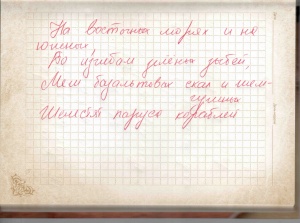 На восточных морях и на
южных,
По изгибам зеленых зыбей,
Меж базальтовых скал и жем-
чужных
Шелестят паруса кораблей